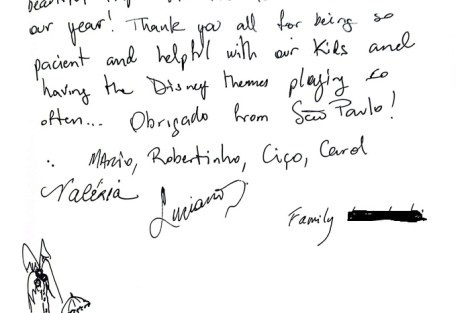 beautiful
our year! Thank you all for being so
pacient and helpful with our Kids and
having the Disney themes playing so
often... Obrigado from São Paulo!
Marcio, Robertinho, Ciço, Carol
Valéria Luciano
Family